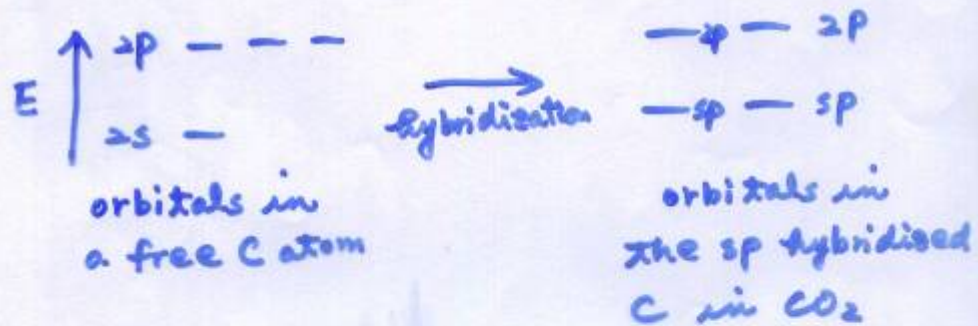 E
2p
2s
orbitals in
a free C atom
hybridization
2p 2p
sp sp
orbitals in
the sp hybridized
C in CO₂